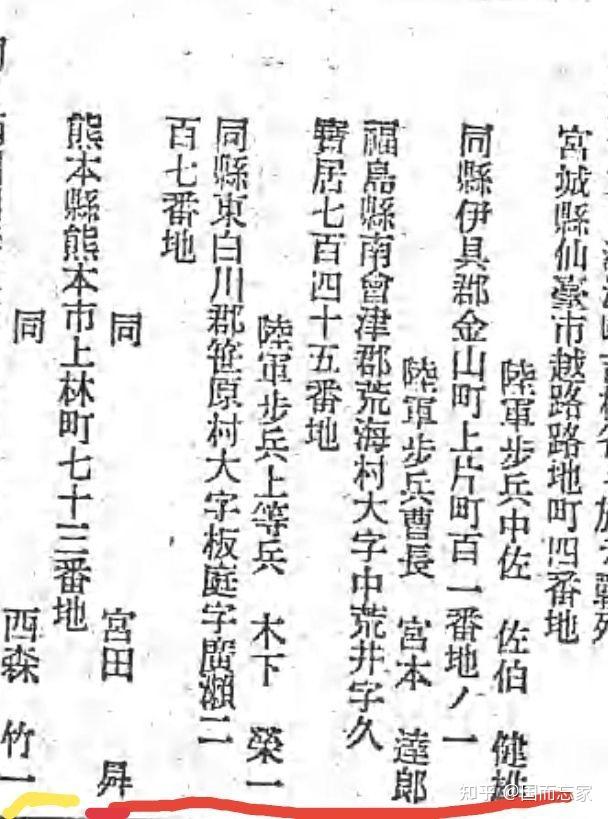 宮城縣仙臺市越路路地町四番地
陸軍步兵中佐 佐伯 健雄
同縣伊具郡金山町上片町百一番地ノ一
陸軍步兵曹長 宮本 達郎
福島縣南會津郡荒海村大字中荒井字久
寶居七百四十五番地
陸軍步兵上等兵 木下 榮一
同縣東白川郡笹原村大字板庭字廣瀨二
百七番地
同 宮田 昇
熊本縣熊本市上林町七十三番地
同 西森 竹一
知乎 @国而忘家